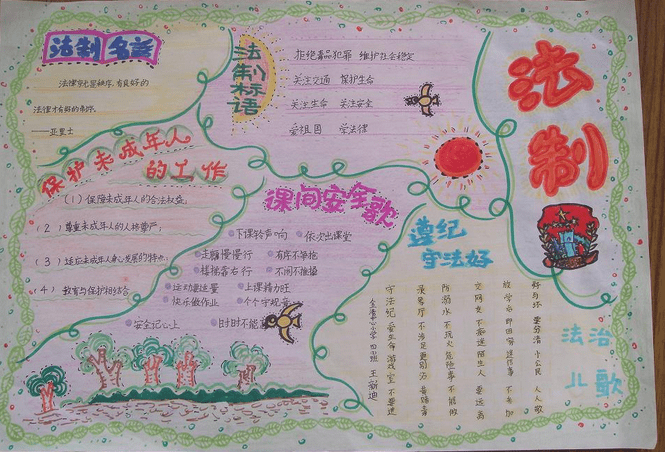 法制名言
法律就是秩序,有良好的
法律才有好的秩序。
——亚里士
法制标语
拒绝毒品犯罪 维护社会稳定
关注交通 保护生命
关注生命 关注安全
爱祖国 学法律
法制
保护未成年人
的工作
(1)保障未成年人的合法权益;
(2)尊重未成年人的人格尊严;
(3)适应未成年人身心发展的特点;
(4)教育与保护相结合
课间安全歌
下课铃声响 依次出课堂
走廊慢慢行 有序不争抢
楼梯靠右行 不闹不推搡
运动要适量 上课精力旺
快乐做作业 个个守规章
安全记心上 时时不能忘
遵纪
守法好
法治
儿歌
好与坏 要分清 小公民 人人敬
放学后 即回家 迷信事 不参加
交朋友 不 陌生人 要远离
防溺水 不玩火 危险事 不能做
录像厅 不涉足 更别去
守法纪 爱生命 游戏室 不要进
小学 四班 王